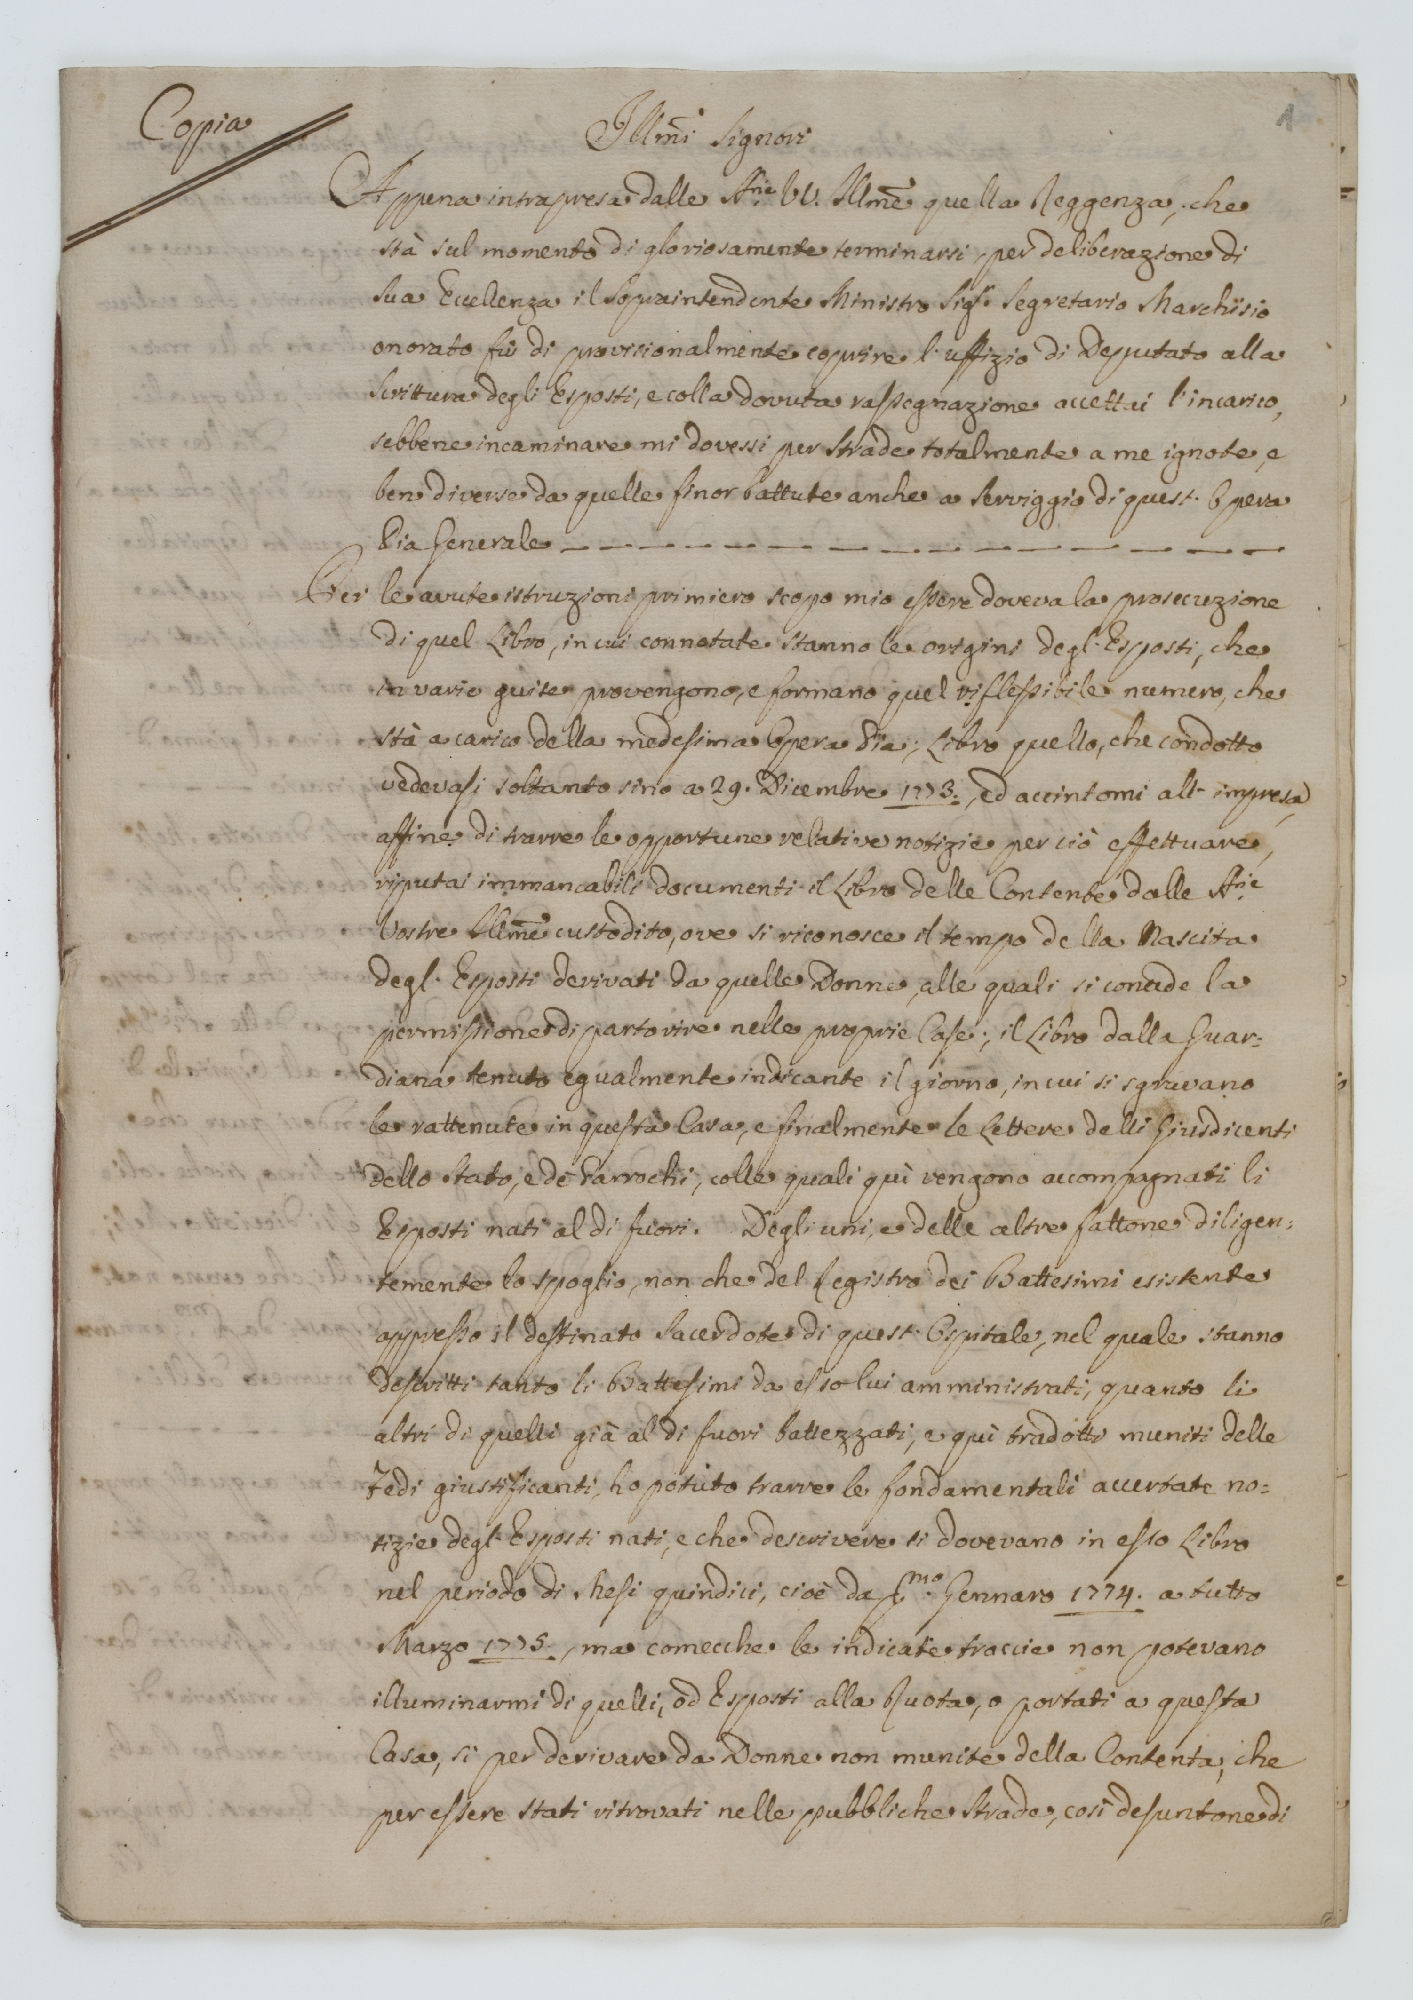 1
Copia
Illm̃i Signori
Appena intrapresa dalle Sr̃ie VV. Illm̃e quella Reggenza, che
stà sul momento di gloriosamente terminarsi, per deliberazione di
Sua Eccellenza il Sopraintendente Ministro Sigr. Segretario Marchisio
onorato fù di provisionalmente coprire l'uffizio di Deputato alla
Scrittura degli Esposti, e colla dovuta rassegnazione accettai l'incarico,
sebbene incaminare mi dovessi per strade totalmente a me ignote, e
ben diverse da quelle finor battute anche a Serviggio di quest' Opera
Pia Generale
Per le avute istruzioni primiero scopo mio essere doveva la prosecuzione
di quel Libro, in cui connotate stanno le origini degl' Esposti, che
in varie guise provengono, e formano quel riflessibile numero, che
stà a carico della medesima Opera Pia; Libro quello, che condotto
vedevasi soltanto sino a 29. Dicembre 1773., ed accintomi all' impresa,
affine di trarre le opportune relative notizie per ciò effettuare,
riputai immancabili documenti il Libro delle Contente dalle Sr̃ie
Vostre Illm̃e custodito, ove si riconosce il tempo della Nascita
degl' Esposti derivati da quelle Donne, alle quali si concede la
permissione di partorire nelle proprie Case; il Libro dalla Guar=
diana tenuto egualmente indicante il giorno, in cui si sgravano
le rattenute in questa Casa, e finalmente le Lettere delli Giusdicenti
dello Stato, e de Parrochi, colle quali quì vengono accompagnati li
Esposti nati al di fuori. Degli uni, e delle altre fattone diligen=
temente lo spoglio, non che del Registro dei Battesimi esistente
appresso il destinato Sacerdote di quest' Ospitale, nel quale stanno
descritti tanto li Battesimi da esso lui amministrati, quanto li
altri di quelli già al di fuori battezzati, e quì tradotti muniti delle
Fedi giustificanti, ho potuto trarre le fondamentali accertate no=
tizie degl' Esposti nati, e che descrivere si dovevano in esso Libro
nel periodo di Mesi quindici, cioè da p.mo Gennaro 1774. a tutto
Marzo 1775., ma comecche le indicate traccie non potevano
illuminarmi di quelli, od Esposti alla Ruota, o portati a questa
Casa, si per derivare da Donne non munite della Contenta, che
per essere stati ritrovati nelle pubbliche Strade, così desuntone di